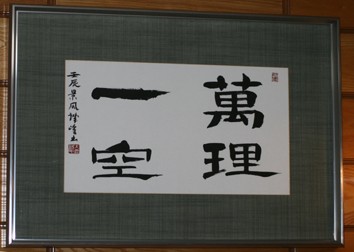 萬理
一空
壬辰景風